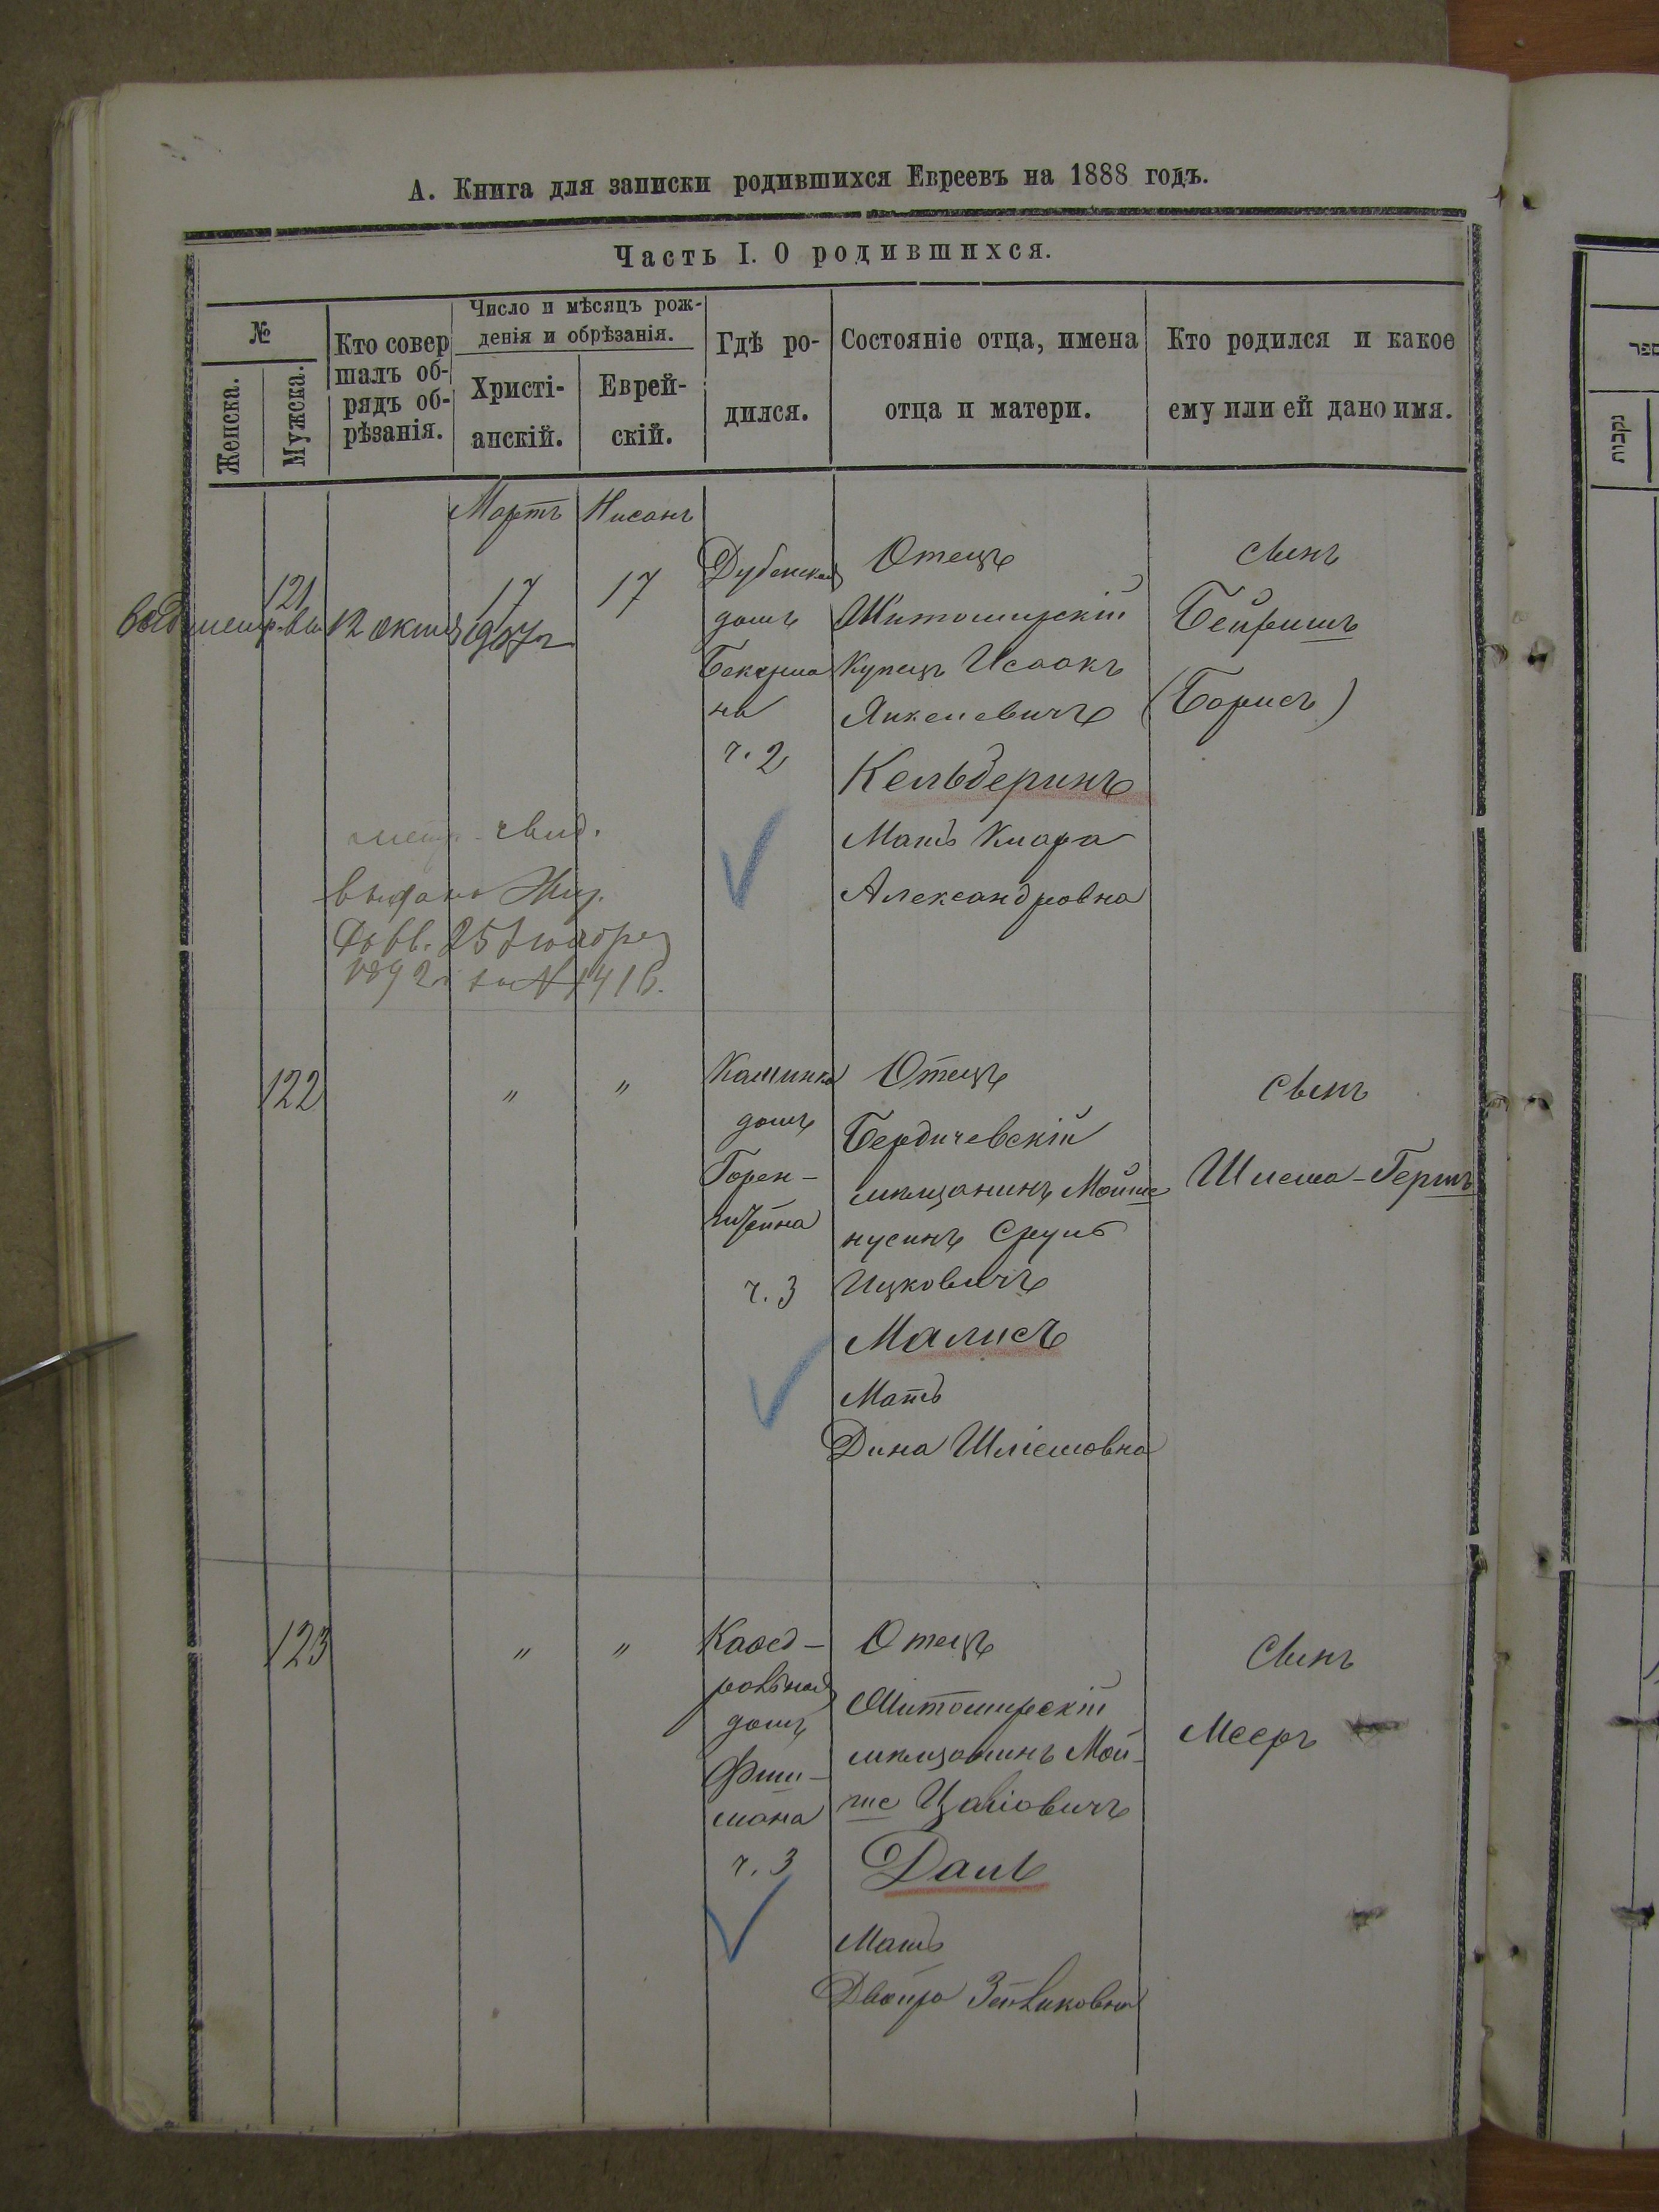 А. Книга для записки родившихся Евреевъ на 1888 годъ.
Часть I. О родившихся.
№
Женска.
Мужска.
Кто совер
шалъ об-
рядъ об-
рѣзанія.
Число и мѣсяцъ рож-
денія и обрѣзанія.
Христі-
анскій.
Еврей-
скій.
Гдѣ ро-
дился.
Состояніе отца, имена
отца и матери.
Кто родился и какое
ему или ей дано имя.
Мартъ
Нисанъ
121
17
17
12 октяб 1907 г
Дубенская
домъ
Бекерма
на
ч. 2
Отецъ
Житомирскій
Купецъ Исаакъ
Янкелевичъ
Кельберинъ
Мать Клара
Александровна
сынъ
Бейришъ
(Борисъ)
метр. свид.
выдано Жит.
25
1892 г за № 1416.
122
"
"
домъ
Горен-
штейна
ч. 3
Отецъ
Бердичевскій
мѣщанинъ Мойше
нусинъ Сруль
Ицковичъ
Малисъ
Мать
Дина Шліомовна
сынъ
Шлема-Гершъ
123
"
"
Каѳед-
ральная
домъ
Фиш-
мана
ч. 3
Отецъ
Житомирскій
мѣщанинъ Мой-
ше Цаліовичъ
Даль
Мать
Двойра Зейликовна
Сынъ
Мееръ
ספר
נקבות